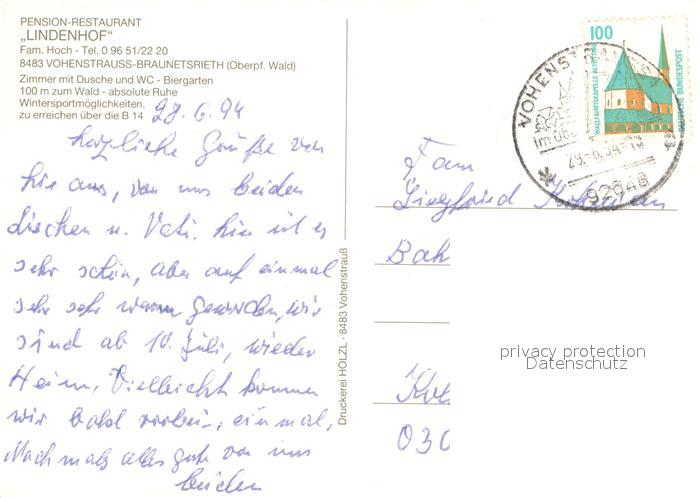 PENSION-RESTAURANT
„LINDENHOF“
Fam. Hoch - Tel. 0 96 51/22 20
8483 VOHENSTRAUSS-BRAUNETSRIETH (Oberpf. Wald)
Zimmer mit Dusche und WC - Biergarten
100 m zum Wald - absolute Ruhe
Wintersportmöglichkeiten.
zu erreichen über die B 14
28.6.94
herzliche Grüße von
hir aus, von uns beiden
u. Vati. hir ist es
sehr schön, aber auf einmal
sehr sehr warm geworden, wir
sind ab 10. Juli, wieder
Heim, Vielleicht kommen
wir bald vorbei, einmal,
Nochmals alles gute von uns
beiden
Druckerei HÖLZL - 8483 Vohenstrauß
100
WALLFAHRTSKAPELLE ALTÖTTING
DEUTSCHE BUNDESPOST
VOHENSTRAUSS
29.-6.94
92648
Fam
Siegfried
Bah
030
privacy protection
Datenschutz